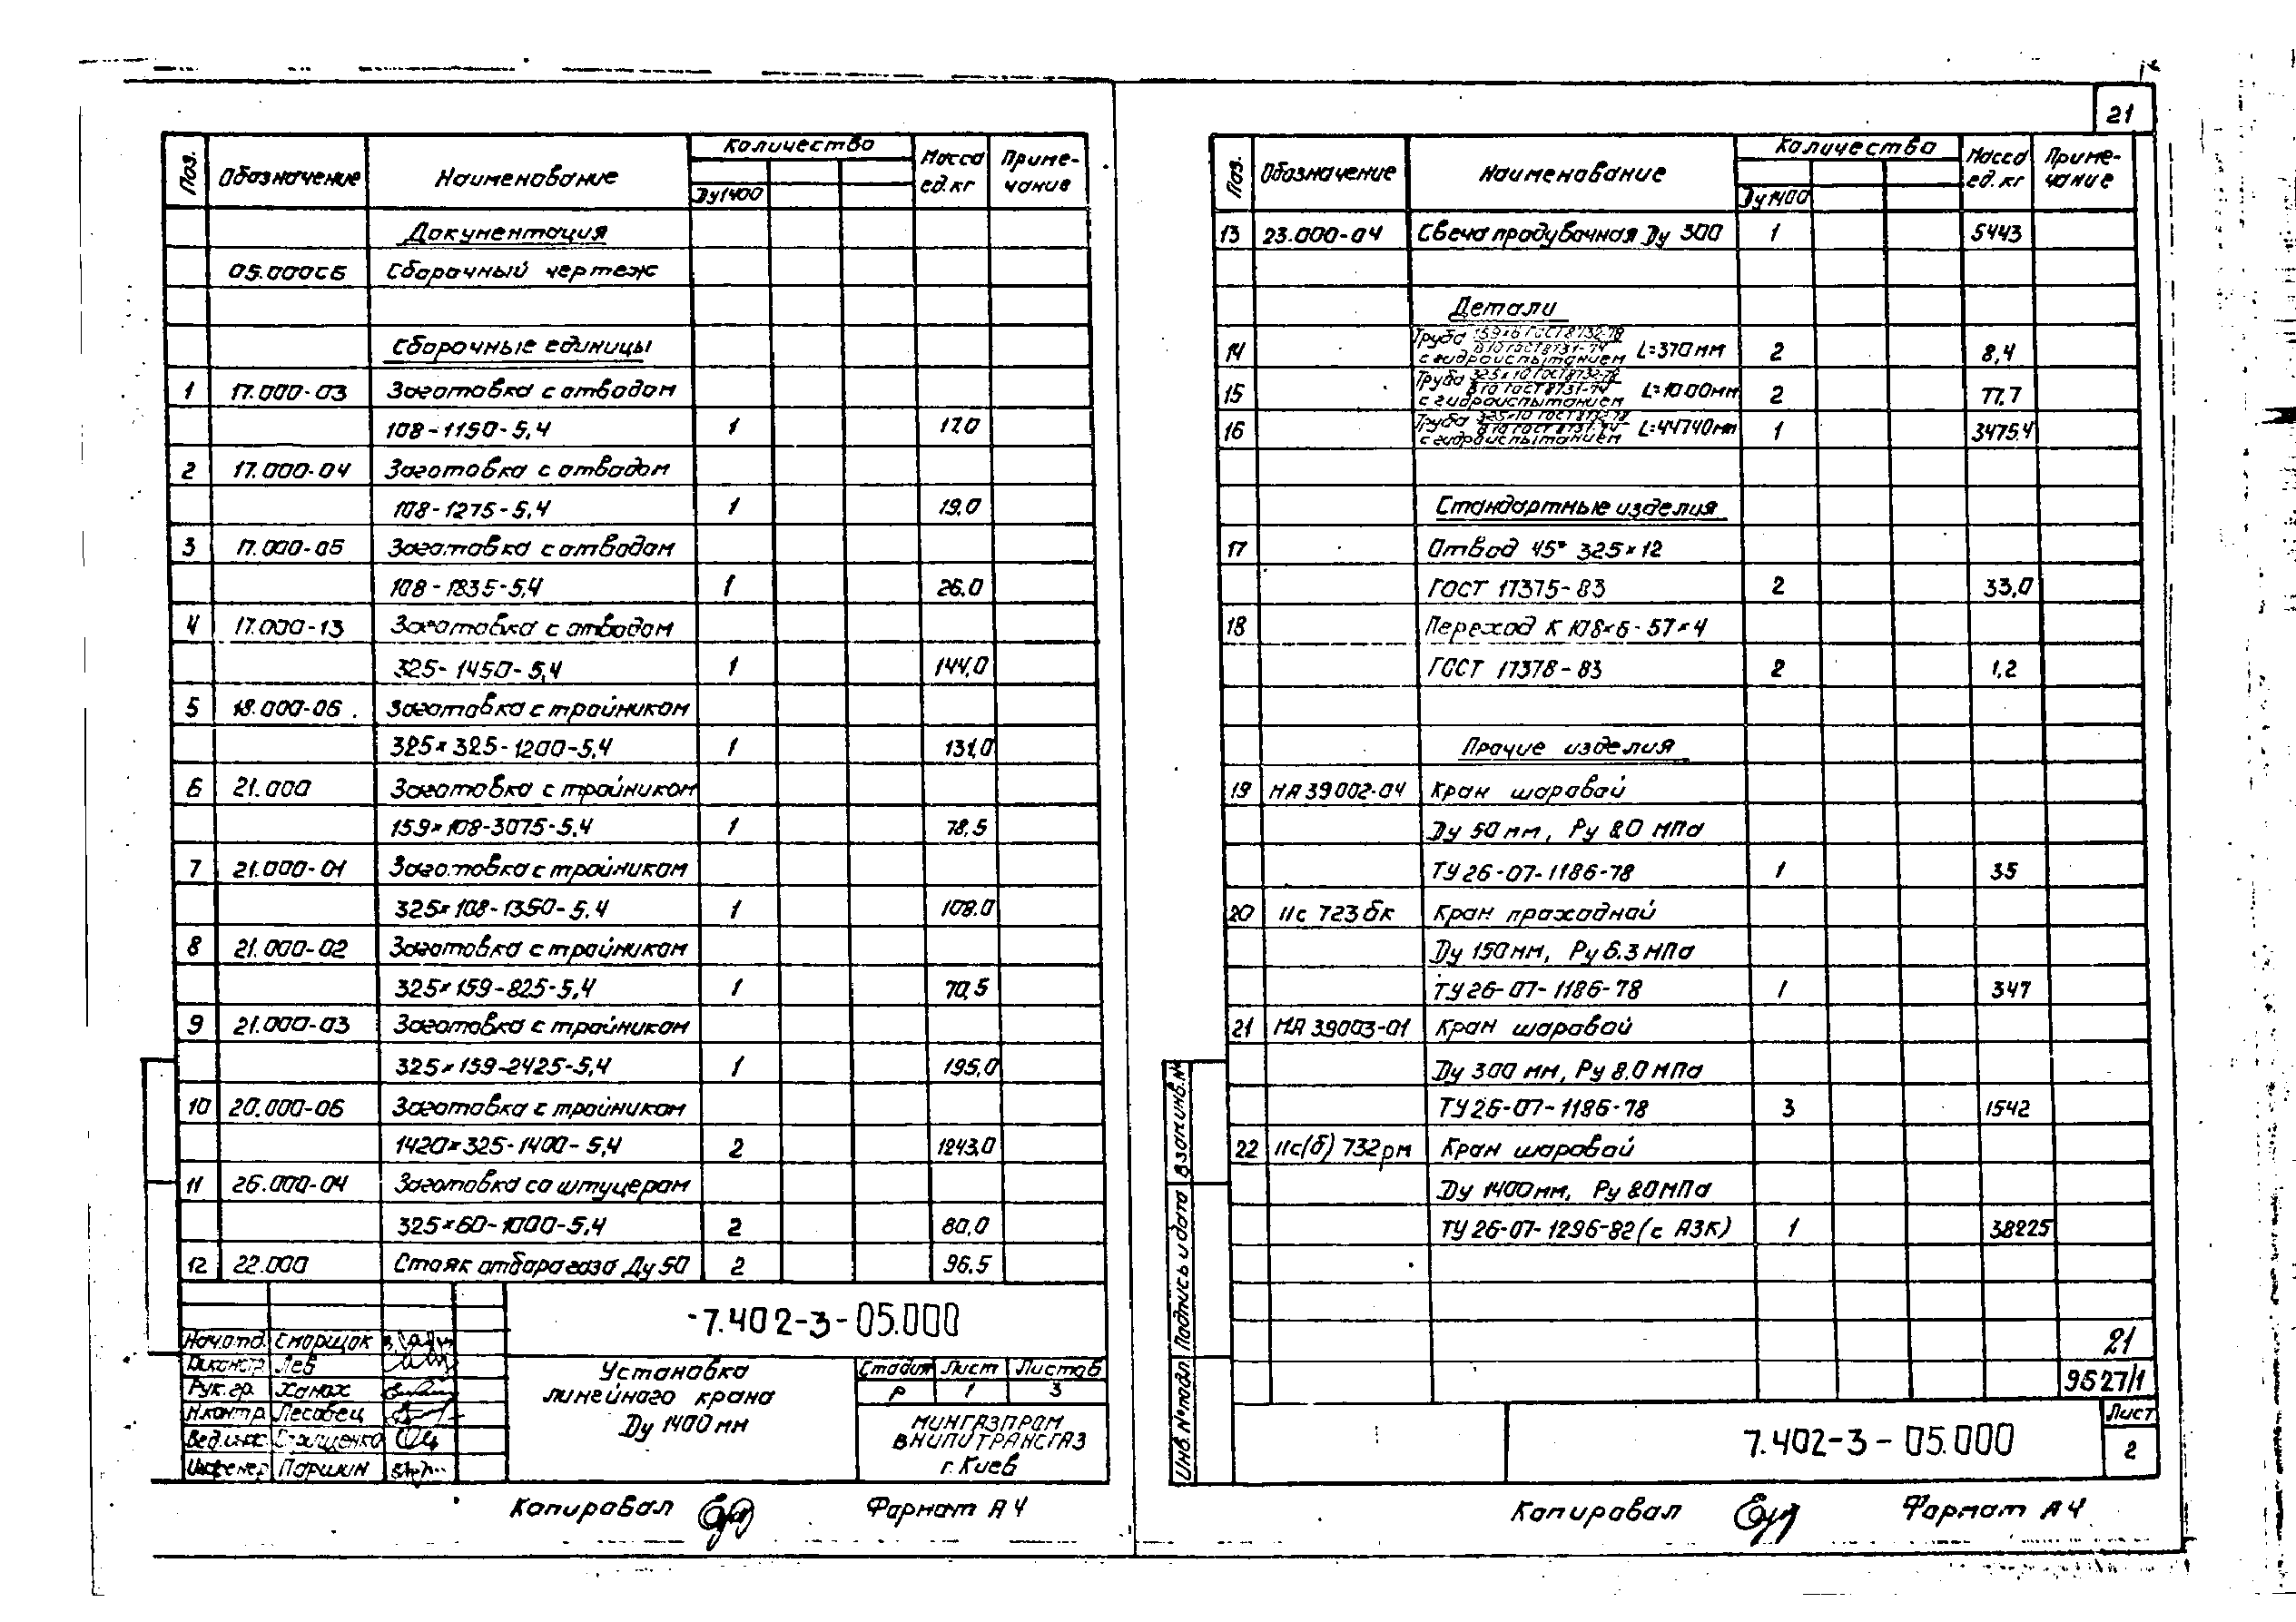 Поз. Обозначение Наименование Количество Масса ед. кг Приме-чание
Ду1400
Документация
05.000СБ Сборочный чертеж
Сборочные единицы
1 17.000-03 Заготовка с отводом
108-1150-5,4 1 17.0
2 17.000-04 Заготовка с отводом
108-1275-5,4 1 19.0
3 17.000-05 Заготовка с отводом
108-1835-5,4 1 26.0
4 17.000-13 Заготовка с отводом
325-1450-5,4 1 144,0
5 18.000-06 Заготовка с тройником
325×325-1200-5,4 1 131,0
6 21.000 Заготовка с тройником
159×108-3075-5,4 1 78,5
7 21.000-01 Заготовка с тройником
325×108-1350-5,4 1 108.0
8 21.000-02 Заготовка с тройником
325×159-825-5,4 1 70,5
9 21.000-03 Заготовка с тройником
325×159-2425-5,4 1 195,0
10 20.000-06 Заготовка с тройником
1420×325-1400-5,4 2 1243,0
11 26.000-04 Заготовка со штуцером
325×60-1000-5,4 2 80,0
12 22.000 Стояк отбора газа Ду 50 2 96.5
7.402-3-05.000
Нач.отд. Сморщок
Лев
Рук.гр. Ханах
Н.контр. Лесовец
Инженер Паршин
Установка
линейного крана
Ду 1400мм
Стадия Лист Листов
Р 1 3
МИНГАЗПРОМ
ВНИПИТРАНСГАЗ
г. Киев
Копировал Формат А4
21
Поз. Обозначение Наименование Количество Масса ед. кг Приме-чание
Ду1400
13 23.000-04 Свеча продувочная Ду 300 1 5443
Детали
14 Труба 159×6 ГОСТ 8732-78 / В10 ГОСТ 8731-74 L=370мм 2 8,4
с гидроиспытанием
15 Труба 325×10 ГОСТ 8732-78 / В10 ГОСТ 8731-74 L=1000мм 2 77,7
с гидроиспытанием
16 Труба 325×10 ГОСТ 8732-78 / В10 ГОСТ 8731-74 L=44740мм 1 3475,4
с гидроиспытанием
Стандартные изделия
17 Отвод 45° 325×12
ГОСТ 17375-83 2 33,0
18 Переход К 108×6-57×4
ГОСТ 17378-83 2 1,2
Прочие изделия
19 МА 39002-04 Кран шаровой
Ду 50мм, Ру 8.0 МПа
ТУ 26-07-1186-78 1 35
20 11с 723бк Кран проходной
Ду 150мм, Ру 6.3 МПа
ТУ 26-07-1186-78 1 347
21 МА 39003-01 Кран шаровой
Ду 300 мм, Ру 8.0 МПа
ТУ 26-07-1186-78 3 1542
22 11с(б) 732рм Кран шаровой
Ду 1400мм, Ру 8.0 МПа
ТУ 26-07-1296-82 (с АЗК) 1 38225
21
9527/1
Инв. № подл. Подпись и дата Взам.инв.№
7.402-3-05.000
Лист
2
Копировал Формат А4